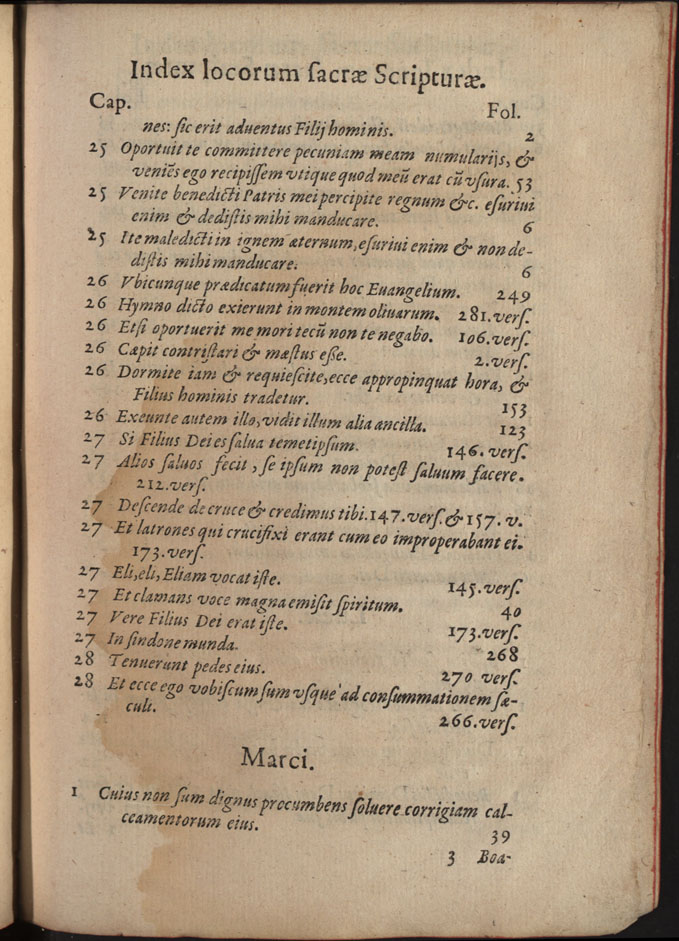 Index locorum sacræ Scripturæ.
Cap. Fol.
nes: sic erit aduentus Filij hominis. 2
25 Oportuit te committere pecuniam meam numularijs, &
veniēs ego recipissem vtique quod meū erat cū vsura. 53
25 Venite benedicti Patris mei percipite regnum &c. esuriui
enim & dedistis mihi manducare. 6
25 Ite maledicti in ignem æternum, esuriui enim & non de-
distis mihi manducare. 6
26 Vbicunque prædicatum fuerit hoc Euangelium. 249
26 Hymno dicto exierunt in montem oliuarum. 281.vers.
26 Etsi oportuerit me mori tecū non te negabo. 106.vers.
26 Cæpit contristari & mæstus esse. 2.vers.
26 Dormite iam & requiescite, ecce appropinquat hora, &
Filius hominis tradetur. 153
26 Exeunte autem illo, vidit illum alia ancilla. 123
27 Si Filius Dei es salua temetipsum. 146.vers.
27 Alios saluos fecit, se ipsum non potest saluum facere.
212.vers.
27 Descende de cruce & credimus tibi. 147.vers. & 157. v.
27 Et latrones qui crucifixi erant cum eo improperabant ei.
173.vers.
27 Eli, eli, Eliam vocat iste. 145.vers.
27 Et clamans voce magna emisit spiritum. 40
27 Vere Filius Dei erat iste. 173.vers.
27 In sindone munda. 268
28 Tenuerunt pedes eius. 270 vers.
28 Et ecce ego vobiscum sum vsque ad consummationem sæ-
culi. 266.vers.
Marci.
1 Cuius non sum dignus procumbens soluere corrigiam cal-
ceamentorum eius. 39
3 Boa-